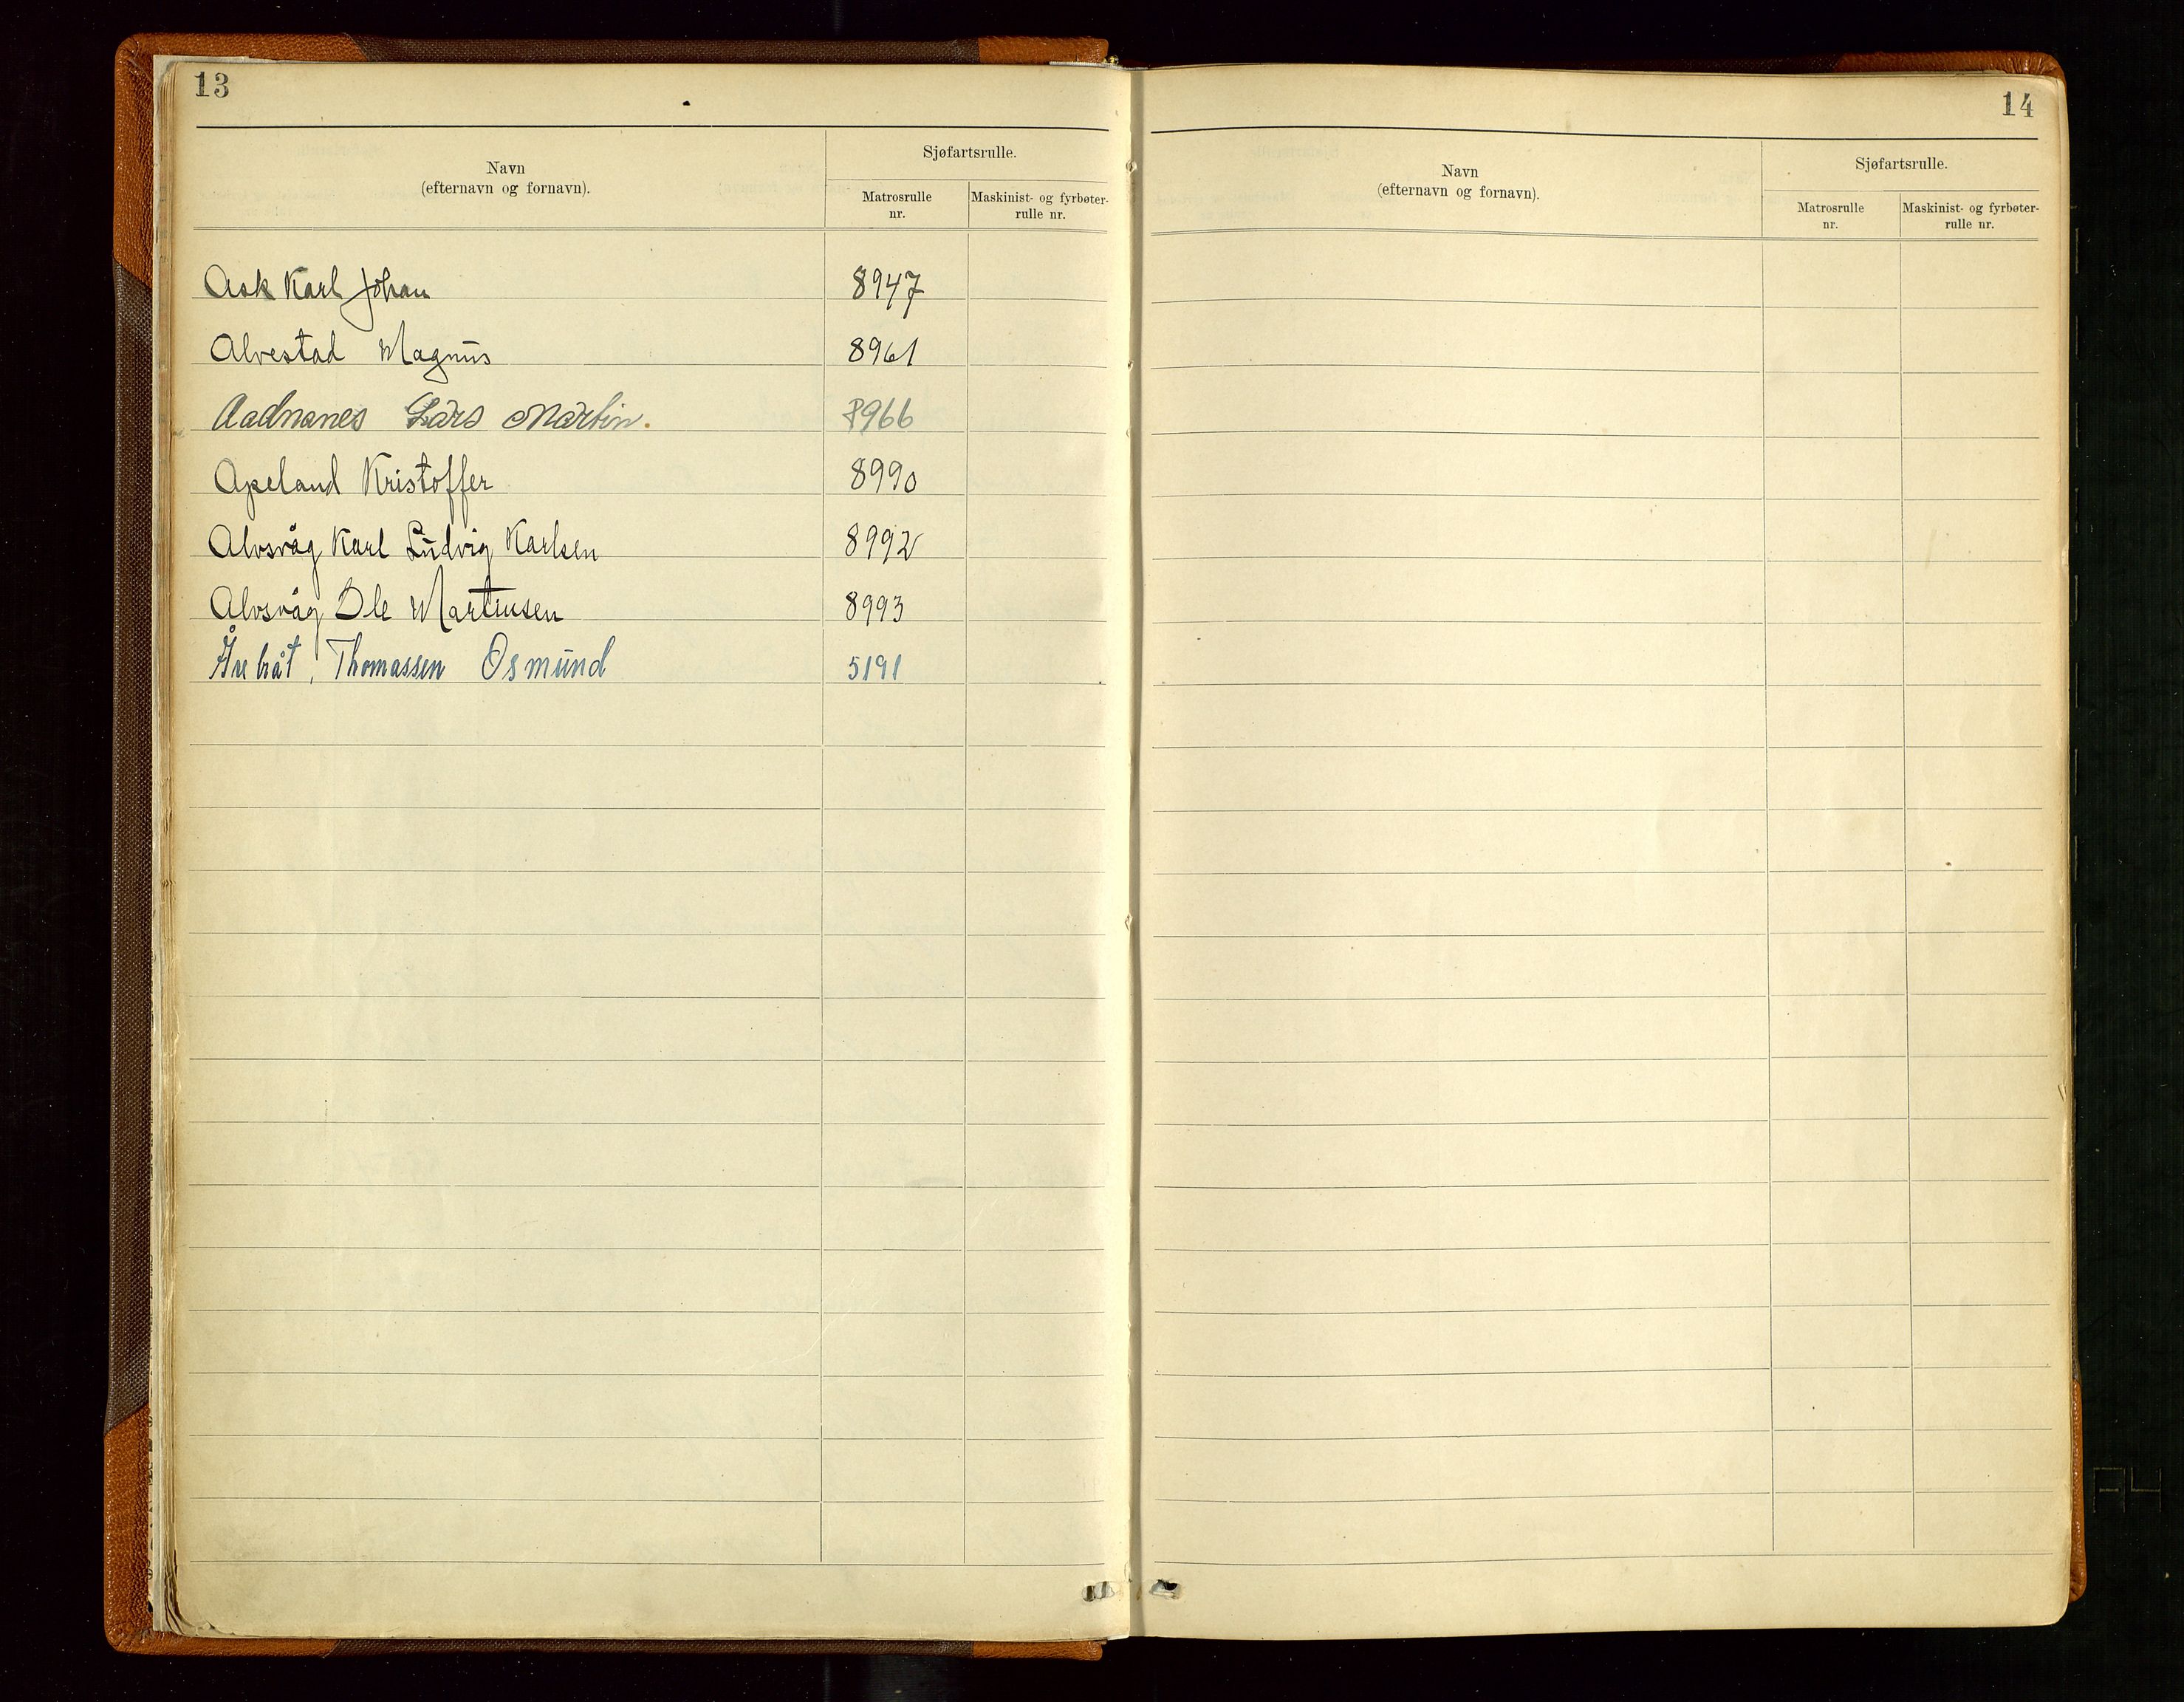 13
Navn
(efternavn og fornavn).
Sjøfartsrulle.
Matrosrulle
nr.
Maskinist- og fyrbøter-
rulle nr.
Ask Karl Johan 8947
Alvestad Magnus 8961
Aadnanes Lars Martin. 8966
Apeland Kristoffer 8990
Alvsvåg Karl Ludvig Karlsen 8992
Alvsvåg Ole Martinsen 8993
Thomassen Osmund 5191
14
Navn
(efternavn og fornavn).
Sjøfartsrulle.
Matrosrulle
nr.
Maskinist- og fyrbøter-
rulle nr.